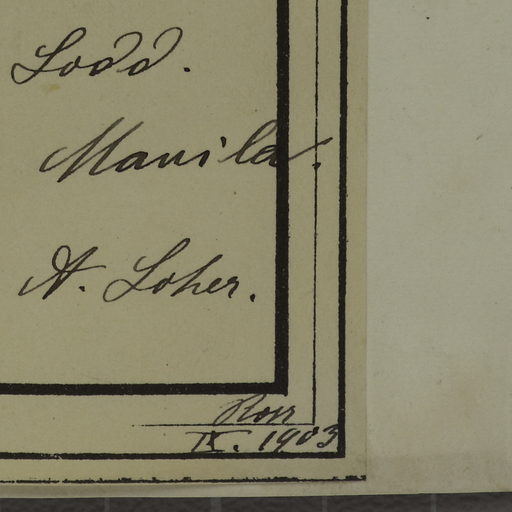 Lodd.
Manila.
A. Loher.
Ross
IX. 1903